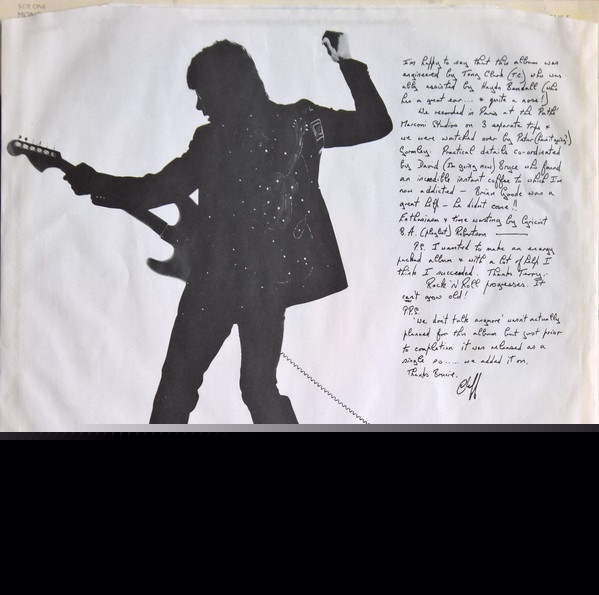 SIDE ONE
I'm happy to say that this album was
engineered by Tony Clark (T.C.) who was
ably assisted by Haydn Bendall (who
has a great ear... & quite a nose!)
We recorded in Paris at the Pathé
Marconi Studios on 3 separate trips &
we were watched over by Peter
Gormley. Practical details co-ordinated
by David (I'm going now) Bryce who found
an incredible instant coffee to which I'm
now addicted – Brian Goode was a
great help – he didn't come!!
Enthusiasm & time wasting by
B.A. (playlist) Robertson
P.S. I wanted to make an energy
packed album & with a lot of help I
think I succeeded. Thanks Terry.
Rock 'N' Roll progresses. It
can't grow old!
P.P.S.
'We don't talk anymore' wasn't actually
planned for this album but just prior
to completion it was released as a
single so..... we added it on.
Thanks Bruce.
Cliff